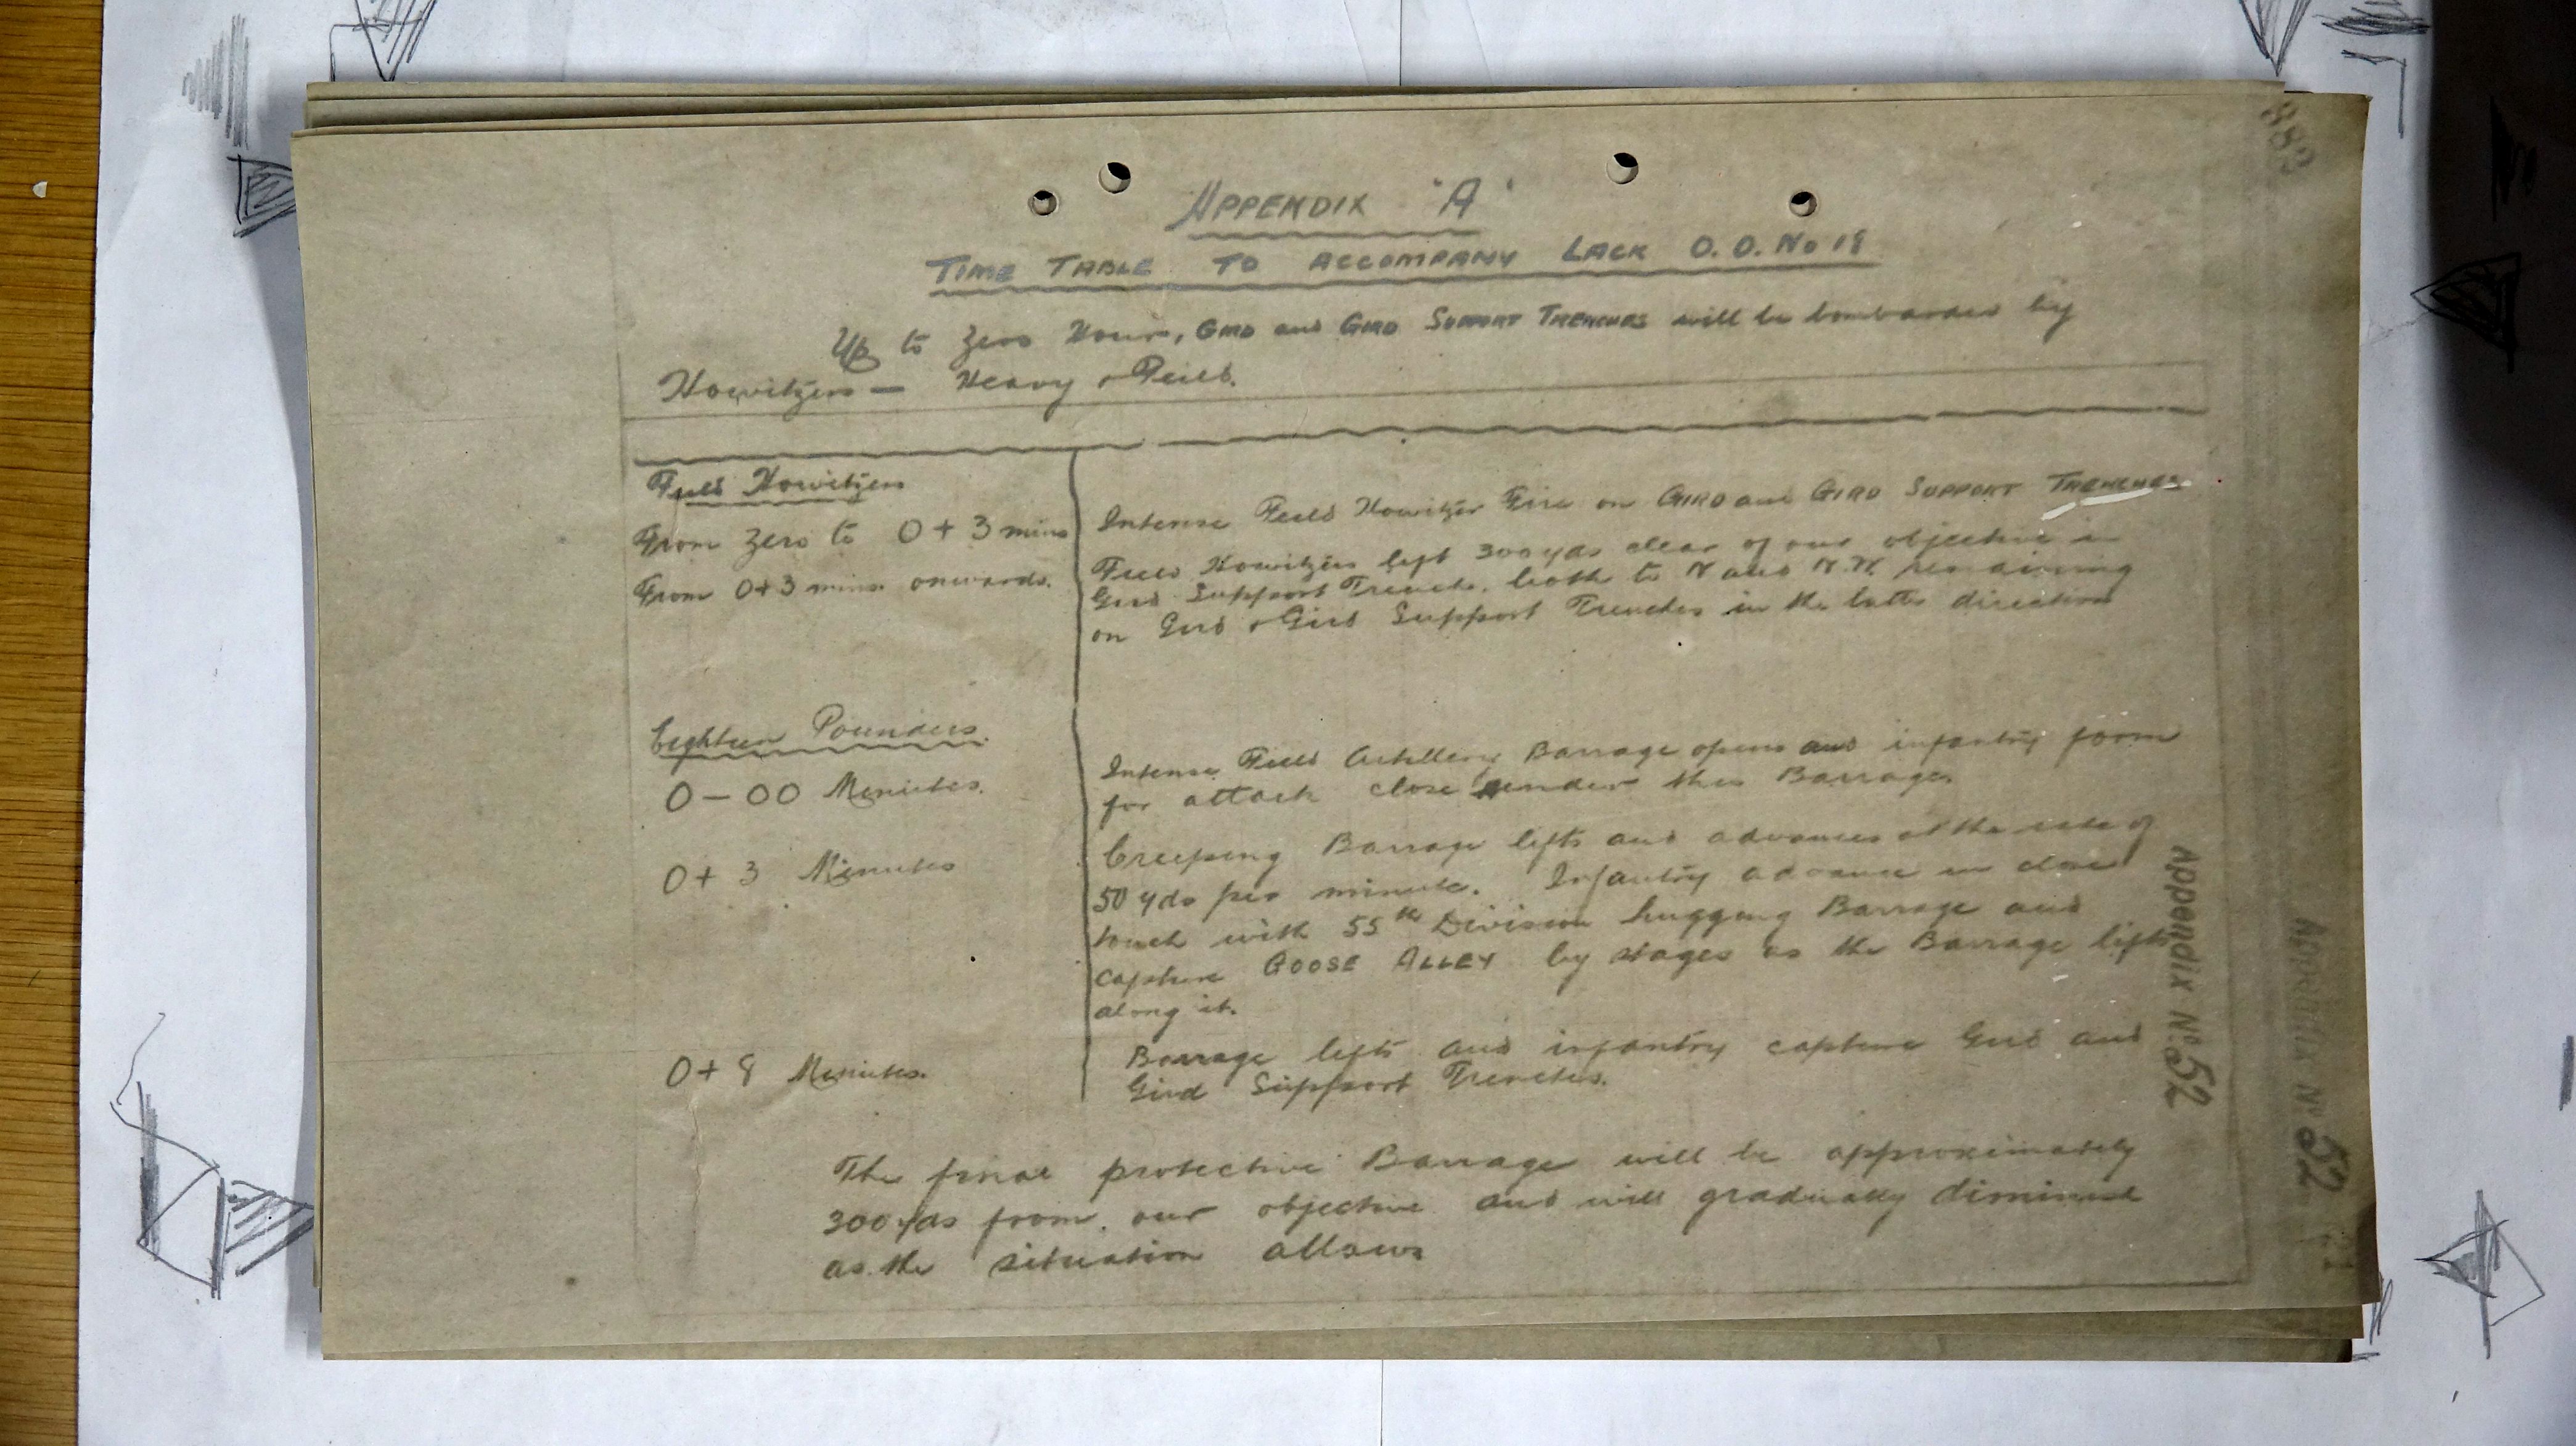 883
APPENDIX 'A'
TIME TABLE TO ACCOMPANY LACK O.O. No 18
Up to Zero Hour, GIRD and GIRD SUPPORT TRENCHES will be bombarded by
Howitzers — Heavy & Field.
Field Howitzers
From Zero to 0 + 3 mins
Intense Field Howitzer Fire on GIRD and GIRD SUPPORT TRENCHES
From 0+3 mins onwards.
Field Howitzers lift 300 yds clear of our objective in
Gird Support Trench, both to N and N.W. remaining
on Gird & Gird Support Trenches in the latter direction
Eighteen Pounders.
0 – 00 Minutes.
Intense Field Artillery Barrage opens and infantry form
for attack close under this Barrage.
0 + 3 Minutes
Creeping Barrage lifts and advances at the rate of
50 yds per minute. Infantry advance in close
touch with 55th Division hugging Barrage and
capture GOOSE ALLEY by stages as the Barrage lifts
along it.
0 + 8 Minutes.
Barrage lifts and infantry capture Gird and
Gird Support Trenches.
The final protective Barrage will be approximately
300 yds from our objective and will gradually diminish
as the situation allows
Appendix No. 52
Appendix No. 52